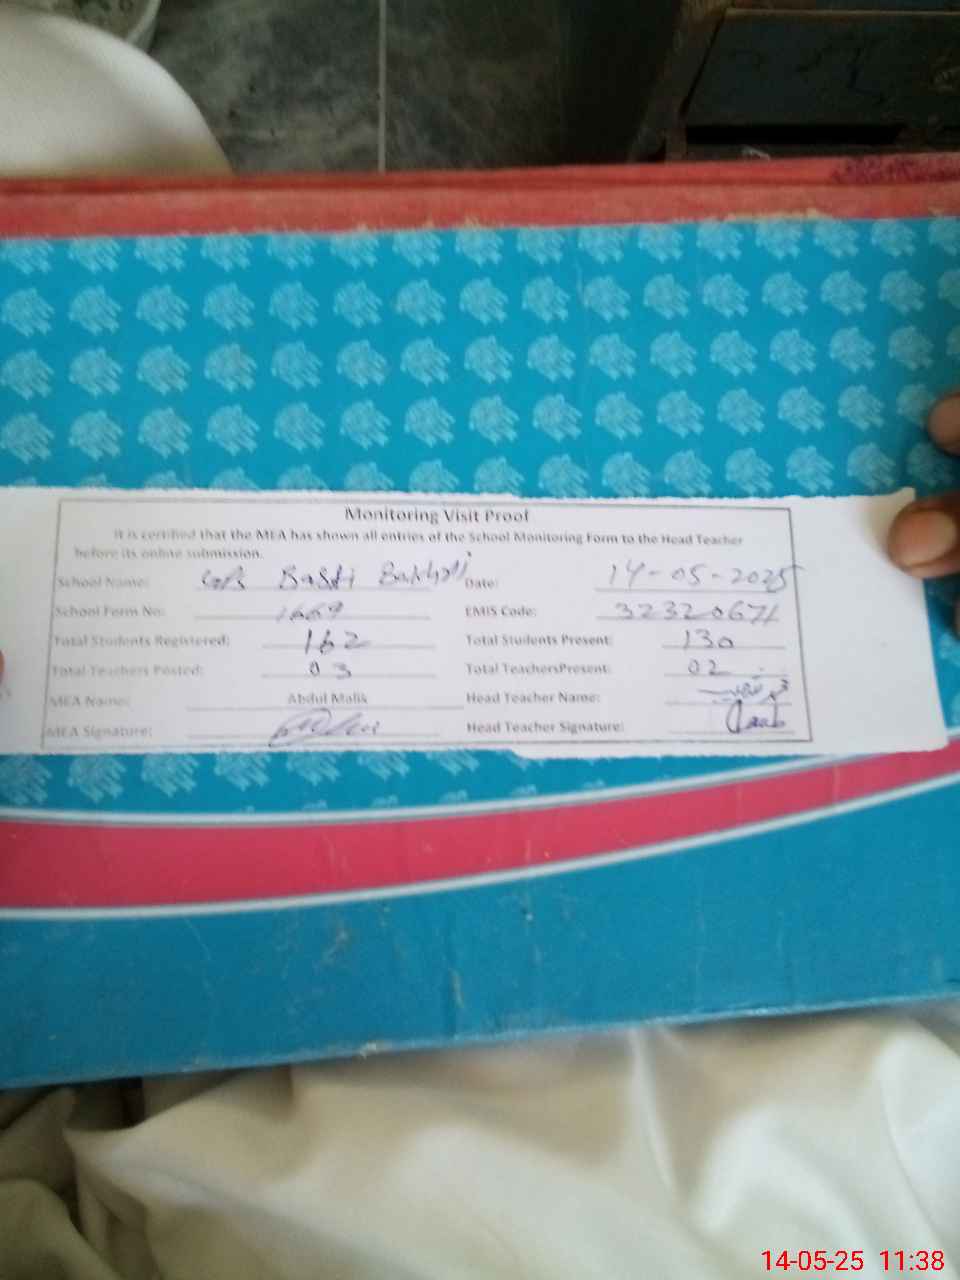 Monitoring Visit Proof
It is certified that the MEA has shown all entries of the School Monitoring Form to the Head Teacher
before its online submission.
School Name: Basti Date: 14-05-2025
School Form No: 1669 EMIS Code: 32320671
Total Students Registered: 162 Total Students Present: 130
Total Teachers Posted: 03 Total TeachersPresent: 02
MEA Name: Abdul Malik Head Teacher Name:
MEA Signature: Head Teacher Signature:
14-05-25 11:38